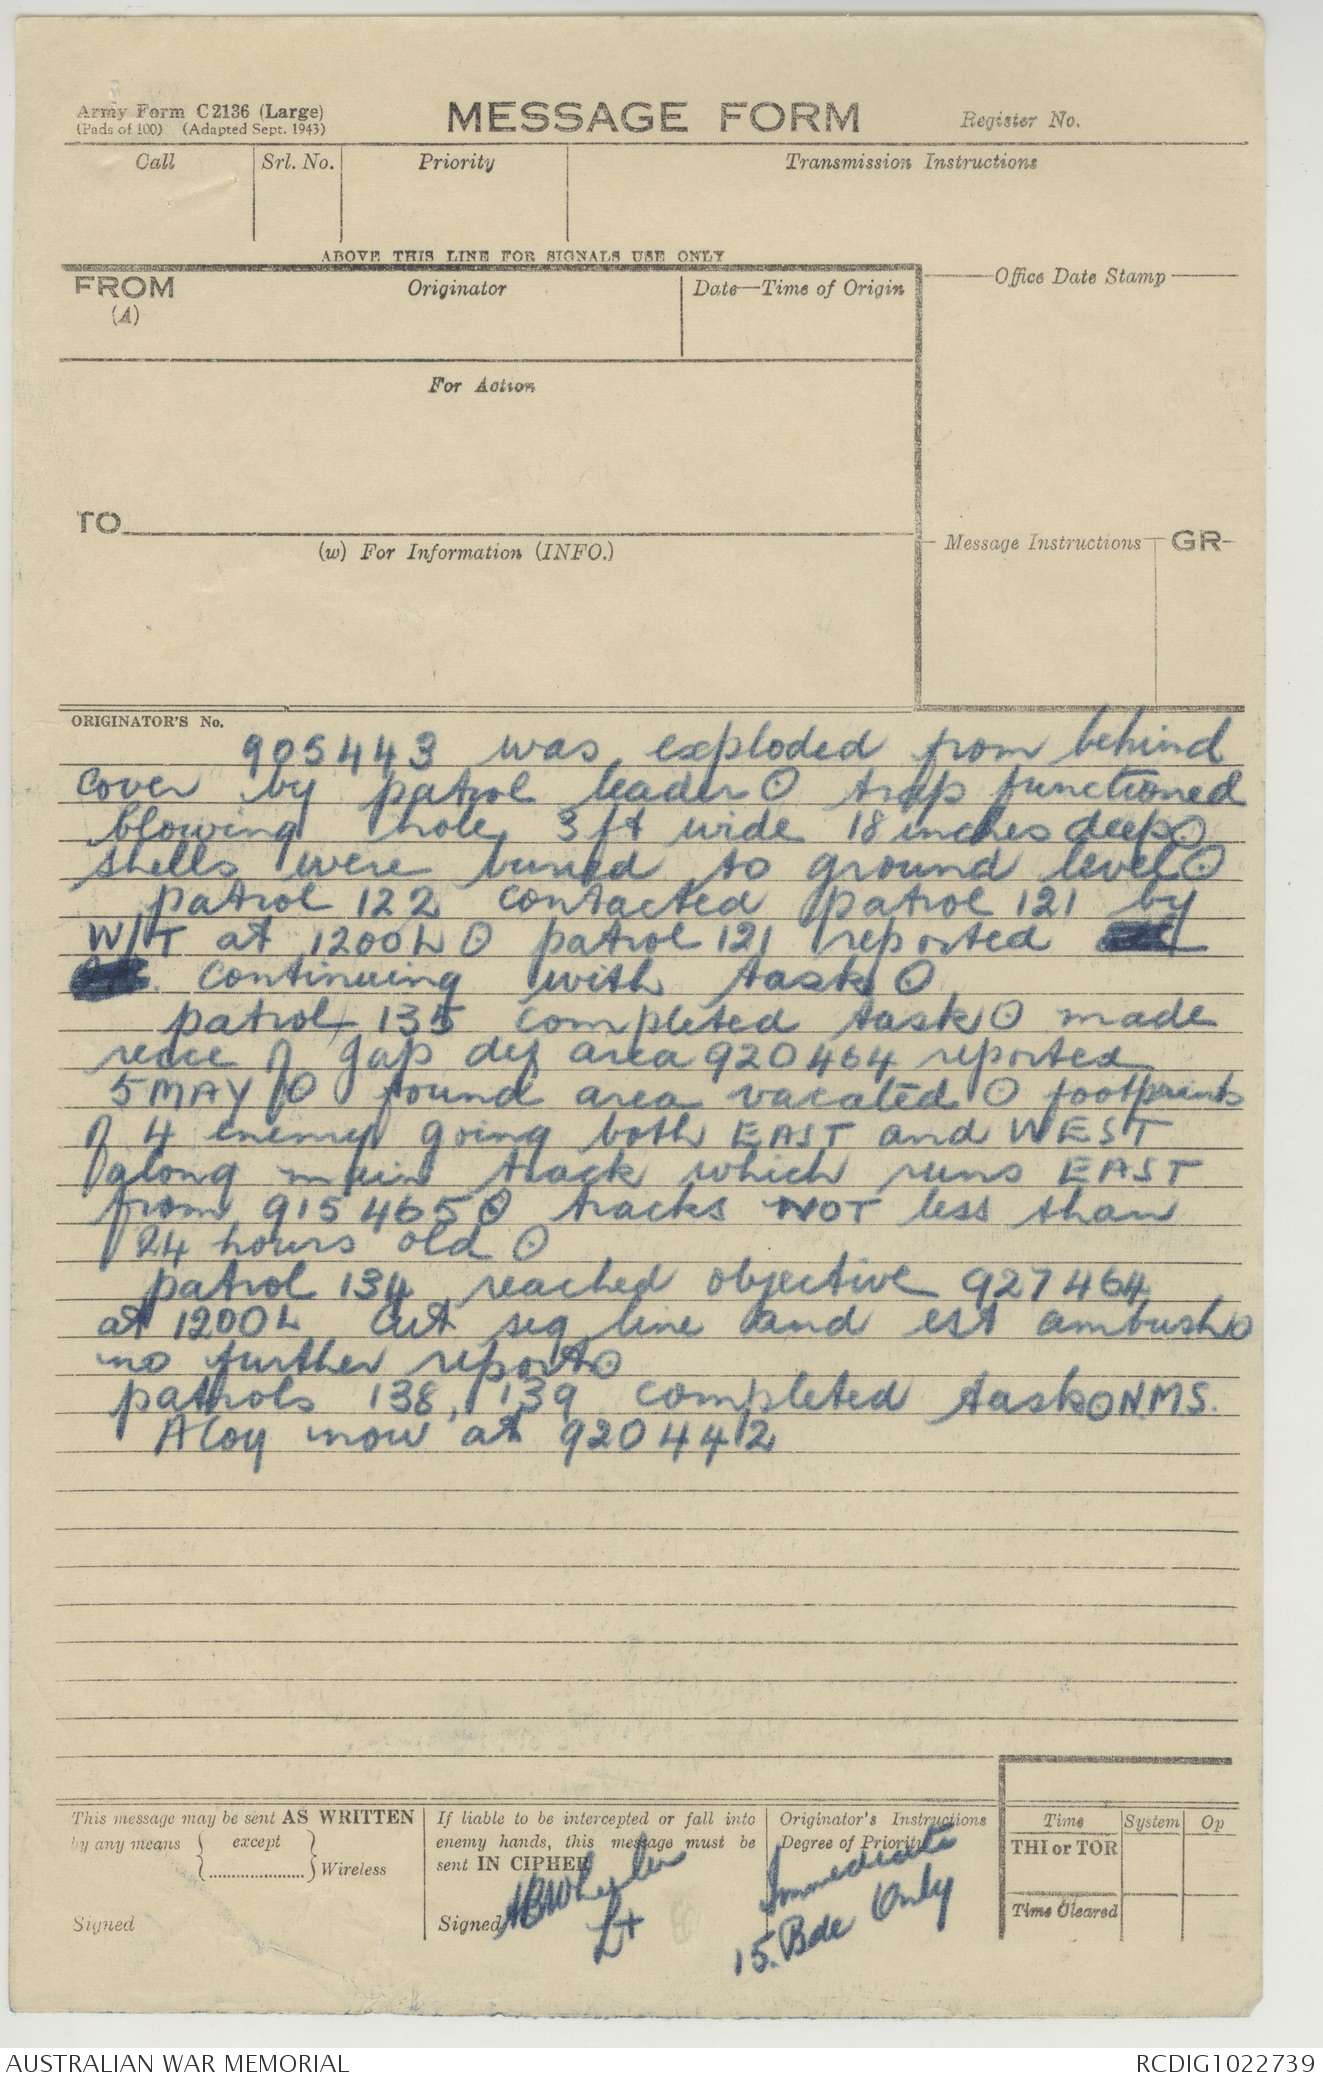 Army Form C2136 (Large)
(Pads of 100) (Adapted Sept. 1943)
MESSAGE FORM
Register No.
Call
Srl. No.
Priority
Transmission Instructions
ABOVE THIS LINE FOR SIGNALS USE ONLY
FROM
(A)
Originator
Date—Time of Origin
Office Date Stamp
For Action
TO
(w) For Information (INFO.)
Message Instructions
GR
ORIGINATOR'S No.
905443 was exploded from behind
cover by patrol leader ⊙ trap functioned
blowing hole 3ft wide 18 inches deep ⊙
shells were buried to ground level ⊙
patrol 122 contacted patrol 121 by
W/T at 1200L ⊙ patrol 121 reported
continuing with task ⊙
patrol 135 completed task ⊙ made
recce of gap def area 920464 reported
5 MAY ⊙ found area vacated ⊙ footprints
of 4 enemy going both EAST and WEST
along main track which runs EAST
from 915465 ⊙ tracks NOT less than
24 hours old ⊙
patrol 134 reached objective 927464
at 1200L cut sig line and est ambush ⊙
no further report ⊙
patrols 138, 139 completed task ⊙ N.M.S.
A Coy now at 920442
This message may be sent AS WRITTEN
by any means { except } Wireless
Signed
If liable to be intercepted or fall into
enemy hands, this message must be
sent IN CIPHER
Signed Wheeler
Lt
Originator's Instructions
Degree of Priority
Immediate
15. Bde Only
Time
System
Op
THI or TOR
Time Cleared
AUSTRALIAN WAR MEMORIAL
RCDIG1022739